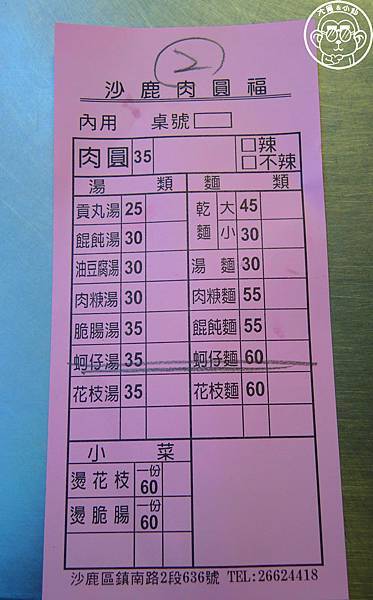 大胃&小點
2
沙鹿肉圓福
內用 桌號
肉圓 35 □辣 □不辣
湯類 麵類
貢丸湯 25 乾麵 大 45
餛飩湯 30 小 30
油豆腐湯 30 湯麵 30
肉焿湯 30 肉焿麵 55
脆腸湯 35 餛飩麵 55
蚵仔湯 35 蚵仔麵 60
花枝湯 35 花枝麵 60
小菜
燙花枝 一份 60
燙脆腸 一份 60
沙鹿區鎮南路2段636號 TEL:26624418